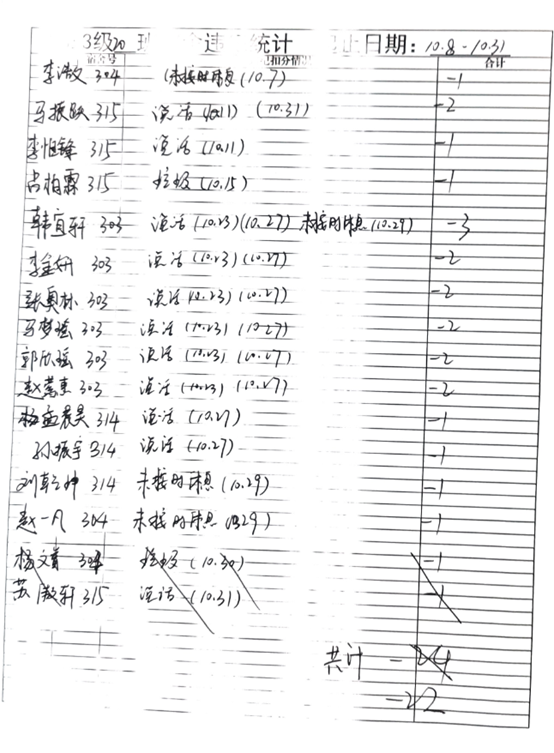 3级20 班 违 统计 止日期：10.8-10.31
宿舍号 违纪扣分情况 合计
李浩文 304 未按时休息 (10.7) -1
马振跃 315 说话 (10.11) (10.31) -2
李恒锋 315 说话 (10.11) -1
占柏霖 315 垃圾 (10.15) -1
韩宜轩 303 说话 (10.23) (10.27) 未按时休息 (10.29) -3
李金妍 303 说话 (10.23) (10.27) -2
张奥林 303 说话 (10.23) (10.27) -2
马梦瑶 303 说话 (10.23) (10.27) -2
郭欣瑶 303 说话 (10.23) (10.27) -2
赵 303 说话 (10.23) (10.27) -2
杨孟晨昊 314 说话 (10.27) -1
孙振宇 314 说话 (10.27) -1
刘乾坤 314 未按时休息 (10.29) -1
赵一凡 304 未按时休息 (10.29) -1
杨文 304 垃圾 (10.30) -1
苏 轩 315 说话 (10.31) -1
共计 -24
-22